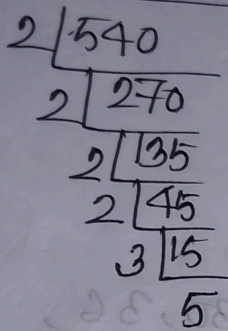 2 540
2 270
2 135
2 45
3 15
5